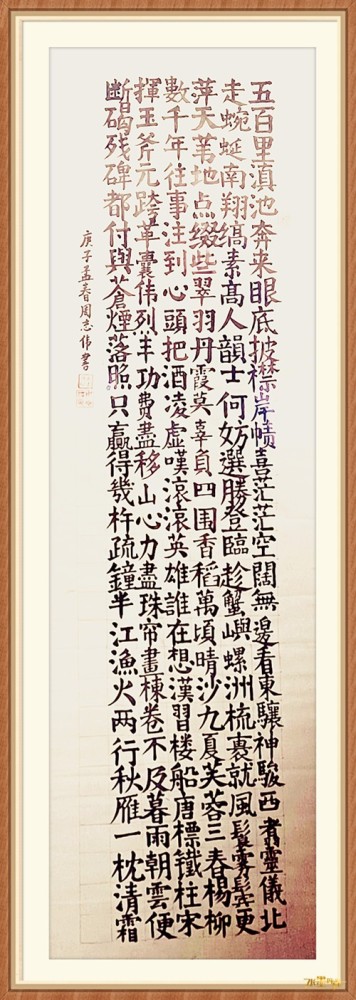 五百里滇池奔来眼底披襟岸帻喜茫茫空闊無邊看東驤神駿西翥靈儀北
走蜿蜒南翔缟素高人韻士何妨選勝登臨趁蟹嶼螺洲梳裹就風鬟霧鬓更
萍天苇地点缀些翠羽丹霞莫辜負四围香稻萬頃晴沙九夏芙蓉三春楊柳
數千年往事注到心頭把酒凌虚嘆滚滚英雄誰在想漢習楼船唐標鐵柱宋
揮玉斧元跨革囊偉烈丰功費盡移山心力盡珠帘畫棟卷不及暮雨朝雲便
断碣残碑都付與蒼煙落照只贏得幾杵疏鐘半江漁火两行秋雁一枕清霜
庚子孟春周志偉書